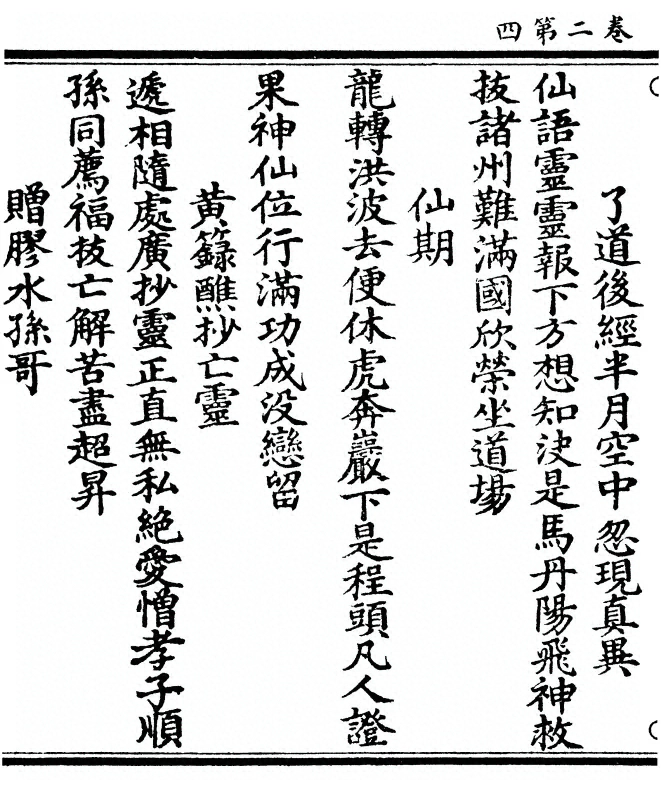 卷二第四
了道後經半月空中忽現真異
仙語靈靈報下方想知決是馬丹陽飛神救
拔諸州難滿國欣榮坐道場
仙期
龍轉洪波去便休虎奔巖下是程頭凡人證
果神仙位行滿功成没戀留
黃籙醮抄亡靈
遞相隨處廣抄靈正直無私絶愛憎孝子順
孫同薦福拔亡解苦盡超昇
贈膠水孫哥